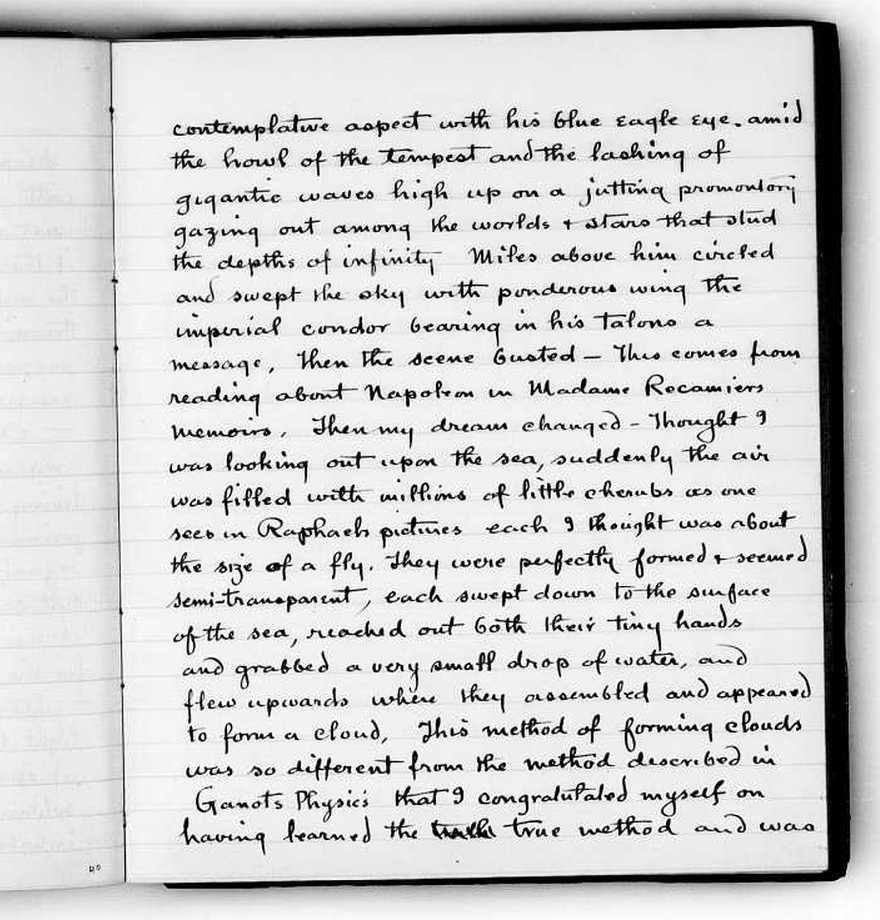 contemplative aspect with his blue eagle eye. amid
the howl of the tempest and the lashing of
gigantic waves high up on a jutting promontory
gazing out among the worlds + stars that stud
the depths of infinity Miles above him circled
and swept the sky with ponderous wing the
imperial condor bearing in his talons a
message, Then the scene busted — This comes from
reading about Napoleon in Madame Recamiers
memoirs. Then my dream changed - Thought I
was looking out upon the sea, suddenly the air
was filled with millions of little cherubs as one
sees in Raphaels pictures each I thought was about
the size of a fly. They were perfectly formed + seemed
semi-transparent, each swept down to the surface
of the sea, reached out both their tiny hands
and grabbed a very small drop of water, and
flew upwards where they assembled and appeared
to form a cloud, This method of forming clouds
was so different from the method described in
Ganots Physics that I congratulated myself on
having learned the true method and was